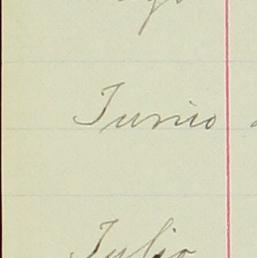 Junio
Julio